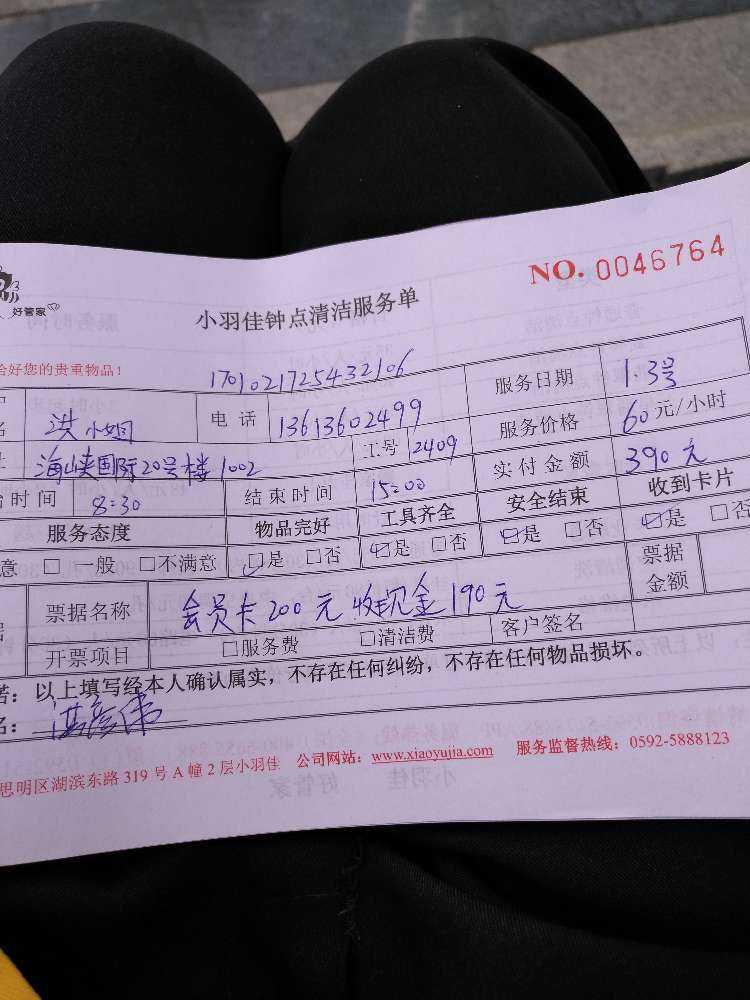 NO. 0046764
好管家
小羽佳钟点清洁服务单
恰好您的贵重物品！
1701021725432106
服务日期 1.3号
名 洪小姐 电话 13613602499 服务价格 60元/小时
海峡国际20号楼1002 工号 2409 实付金额 390元
始时间 8:30 结束时间 15:00 安全结束 收到卡片
服务态度 物品完好 工具齐全
意 □一般 □不满意 □是 □否 □是 □否 □是 □否 □是 □否
票据名称 会员卡200元 收现金190元 票据金额
开票项目 □服务费 □清洁费 客户签名
诺：以上填写经本人确认属实，不存在任何纠纷，不存在任何物品损坏。
名：
思明区湖滨东路319号A幢2层小羽佳 公司网站：www.xiaoyujia.com 服务监督热线：0592-5888123